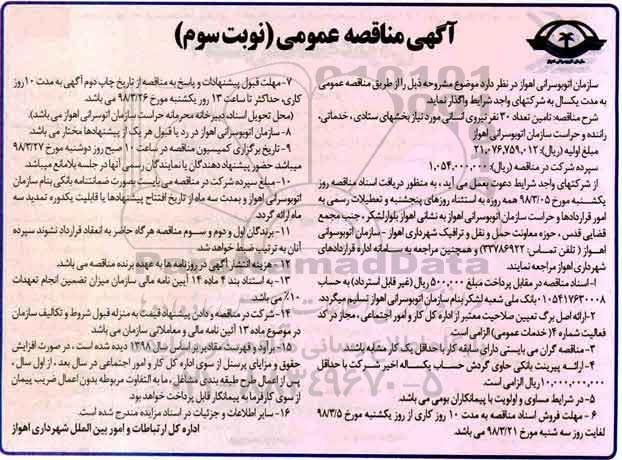 آگهی مناقصه عمومی (نوبت سوم)
سازمان اتوبوسرانی اهواز در نظر دارد موضوع مشروحه ذیل را از طریق مناقصه عمومی
به مدت یکسال به شرکتهای واجد شرایط واگذار نماید.
شرح مناقصه: تامین تعداد ۳۰ نفر نیروی انسانی مورد نیاز بخشهای ستادی، خدماتی،
راننده و حراست سازمان اتوبوسرانی اهواز
مبلغ اولیه (ریال): ۲۱,۰۷۶,۷۵۹,۰۱۲
سپرده شرکت در مناقصه (ریال): ۱,۰۵۴,۰۰۰,۰۰۰
از شرکتهای واجد شرایط دعوت بعمل می آید، به منظور دریافت اسناد مناقصه روز
یکشنبه مورخ ۹۸/۳/۰۵ همه روزه به استثناء روزهای پنجشنبه و تعطیلات رسمی به
امور قراردادها و حراست سازمان اتوبوسرانی اهواز به نشانی اهواز بلوارلشکر، جنب مجمع
قضایی قدس، حوزه معاونت حمل و نقل و ترافیک شهرداری اهواز - سازمان اتوبوسرانی
اهواز (تلفن تماس: ۳۳۷۸۶۹۲۲) و همچنین مراجعه به سامانه اداره قراردادهای
شهرداری اهواز مراجعه نمایند.
۱-اسناد مناقصه در مقابل پرداخت مبلغ ۵۰۰,۰۰۰ ریال (غیر قابل استرداد) به حساب
۰۱۰۵۴۱۷۶۳۰۰۰۸ بانک ملی شعبه لشکر بنام سازمان اتوبوسرانی اهواز تسلیم میگردد.
۲-ارائه اصل برگ تعیین صلاحیت معتبر از اداره کل کار و امور اجتماعی، مجاز در کد
فعالیت شماره ۴ (خدمات عمومی) الزامی است.
۳- مناقصه گران می بایستی دارای سابقه کار با حداقل یک کار مشابه باشند.
۴-ارائه پیرینت بانکی حاوی گردش حساب یکساله اخیر شرکت با حداقل
۱۰,۰۰۰,۰۰۰,۰۰۰ ریال الزامی است.
۵- در شرایط مساوی و اولویت با پیمانکاران بومی می باشد.
۶ - مهلت فروش اسناد مناقصه به مدت ۱۰ روز کاری از روز یکشنبه مورخ ۹۸/۳/۵
لغایت روز سه شنبه مورخ ۹۸/۳/۲۱ می باشد.
۷-مهلت قبول پیشنهادات و پاسخ به مناقصه از تاریخ چاپ دوم آگهی به مدت ۱۰ روز
کاری، حداکثر تا ساعت ۱۳ روز یکشنبه مورخ ۹۸/۳/۲۶ می باشد.
(محل تحویل اسناد، دبیرخانه محرمانه حراست سازمان اتوبوسرانی اهواز می باشد).
۸- سازمان اتوبوسرانی اهواز در رد یا قبول هر یک از پیشنهادها مختار می باشد.
۹- تاریخ برگزاری کمیسیون مناقصه در ساعت ۱۰ صبح روز دوشنبه مورخ ۹۸/۳/۲۷
میباشد. حضور پیشنهاد دهندگان یا نمایندگان رسمی آنها در جلسه بلامانع میباشد.
۱۰-مبلغ سپرده شرکت در مناقصه می بایست بصورت ضمانتنامه بانکی بنام سازمان
اتوبوسرانی اهواز و بمدت سه ماه از تاریخ افتتاح پیشنهادها با قابلیت یکدوره تمدید سه
ماه ارائه گردد.
۱۱- برندگان اول و دوم و سوم مناقصه هرگاه حاضر به انعقاد قرارداد نشوند سپرده
آنان به ترتیب ضبط خواهد شد.
۱۲- هزینه انتشار آگهی در روزنامه ها به عهده برنده مناقصه می باشد.
۱۳- به استناد بند ۴ ماده ۱۴ آیین نامه مالی سازمان میزان تضمین انجام تعهدات
۱۰٪ می باشد.
۱۴-شرکت در مناقصه و دادن پیشنهاد قیمت به منزله قبول شروط و تکالیف سازمان
در موضوع ماده ۱۳ آئین نامه مالی و معاملاتی سازمان می باشد.
۱۵- برآورد و فهرست مقادیر بر اساس سال ۱۳۹۸ دیده شده است، در صورت افزایش
حقوق و مزایای پرسنل از سوی اداره کل کار و امور اجتماعی در سال بعد، از اول سال،
پس از اعمال طرح طبقه بندی مشاغل، ما به التفاوت مربوطه بدون اعمال ضریب پیمان
از سوی کارفرما به پیمانکار قابل پرداخت خواهد بود.
۱۶- سایر اطلاعات و جزئیات در اسناد مزایده مندرج شده است.
اداره کل ارتباطات و امور بین الملل شهرداری اهواز